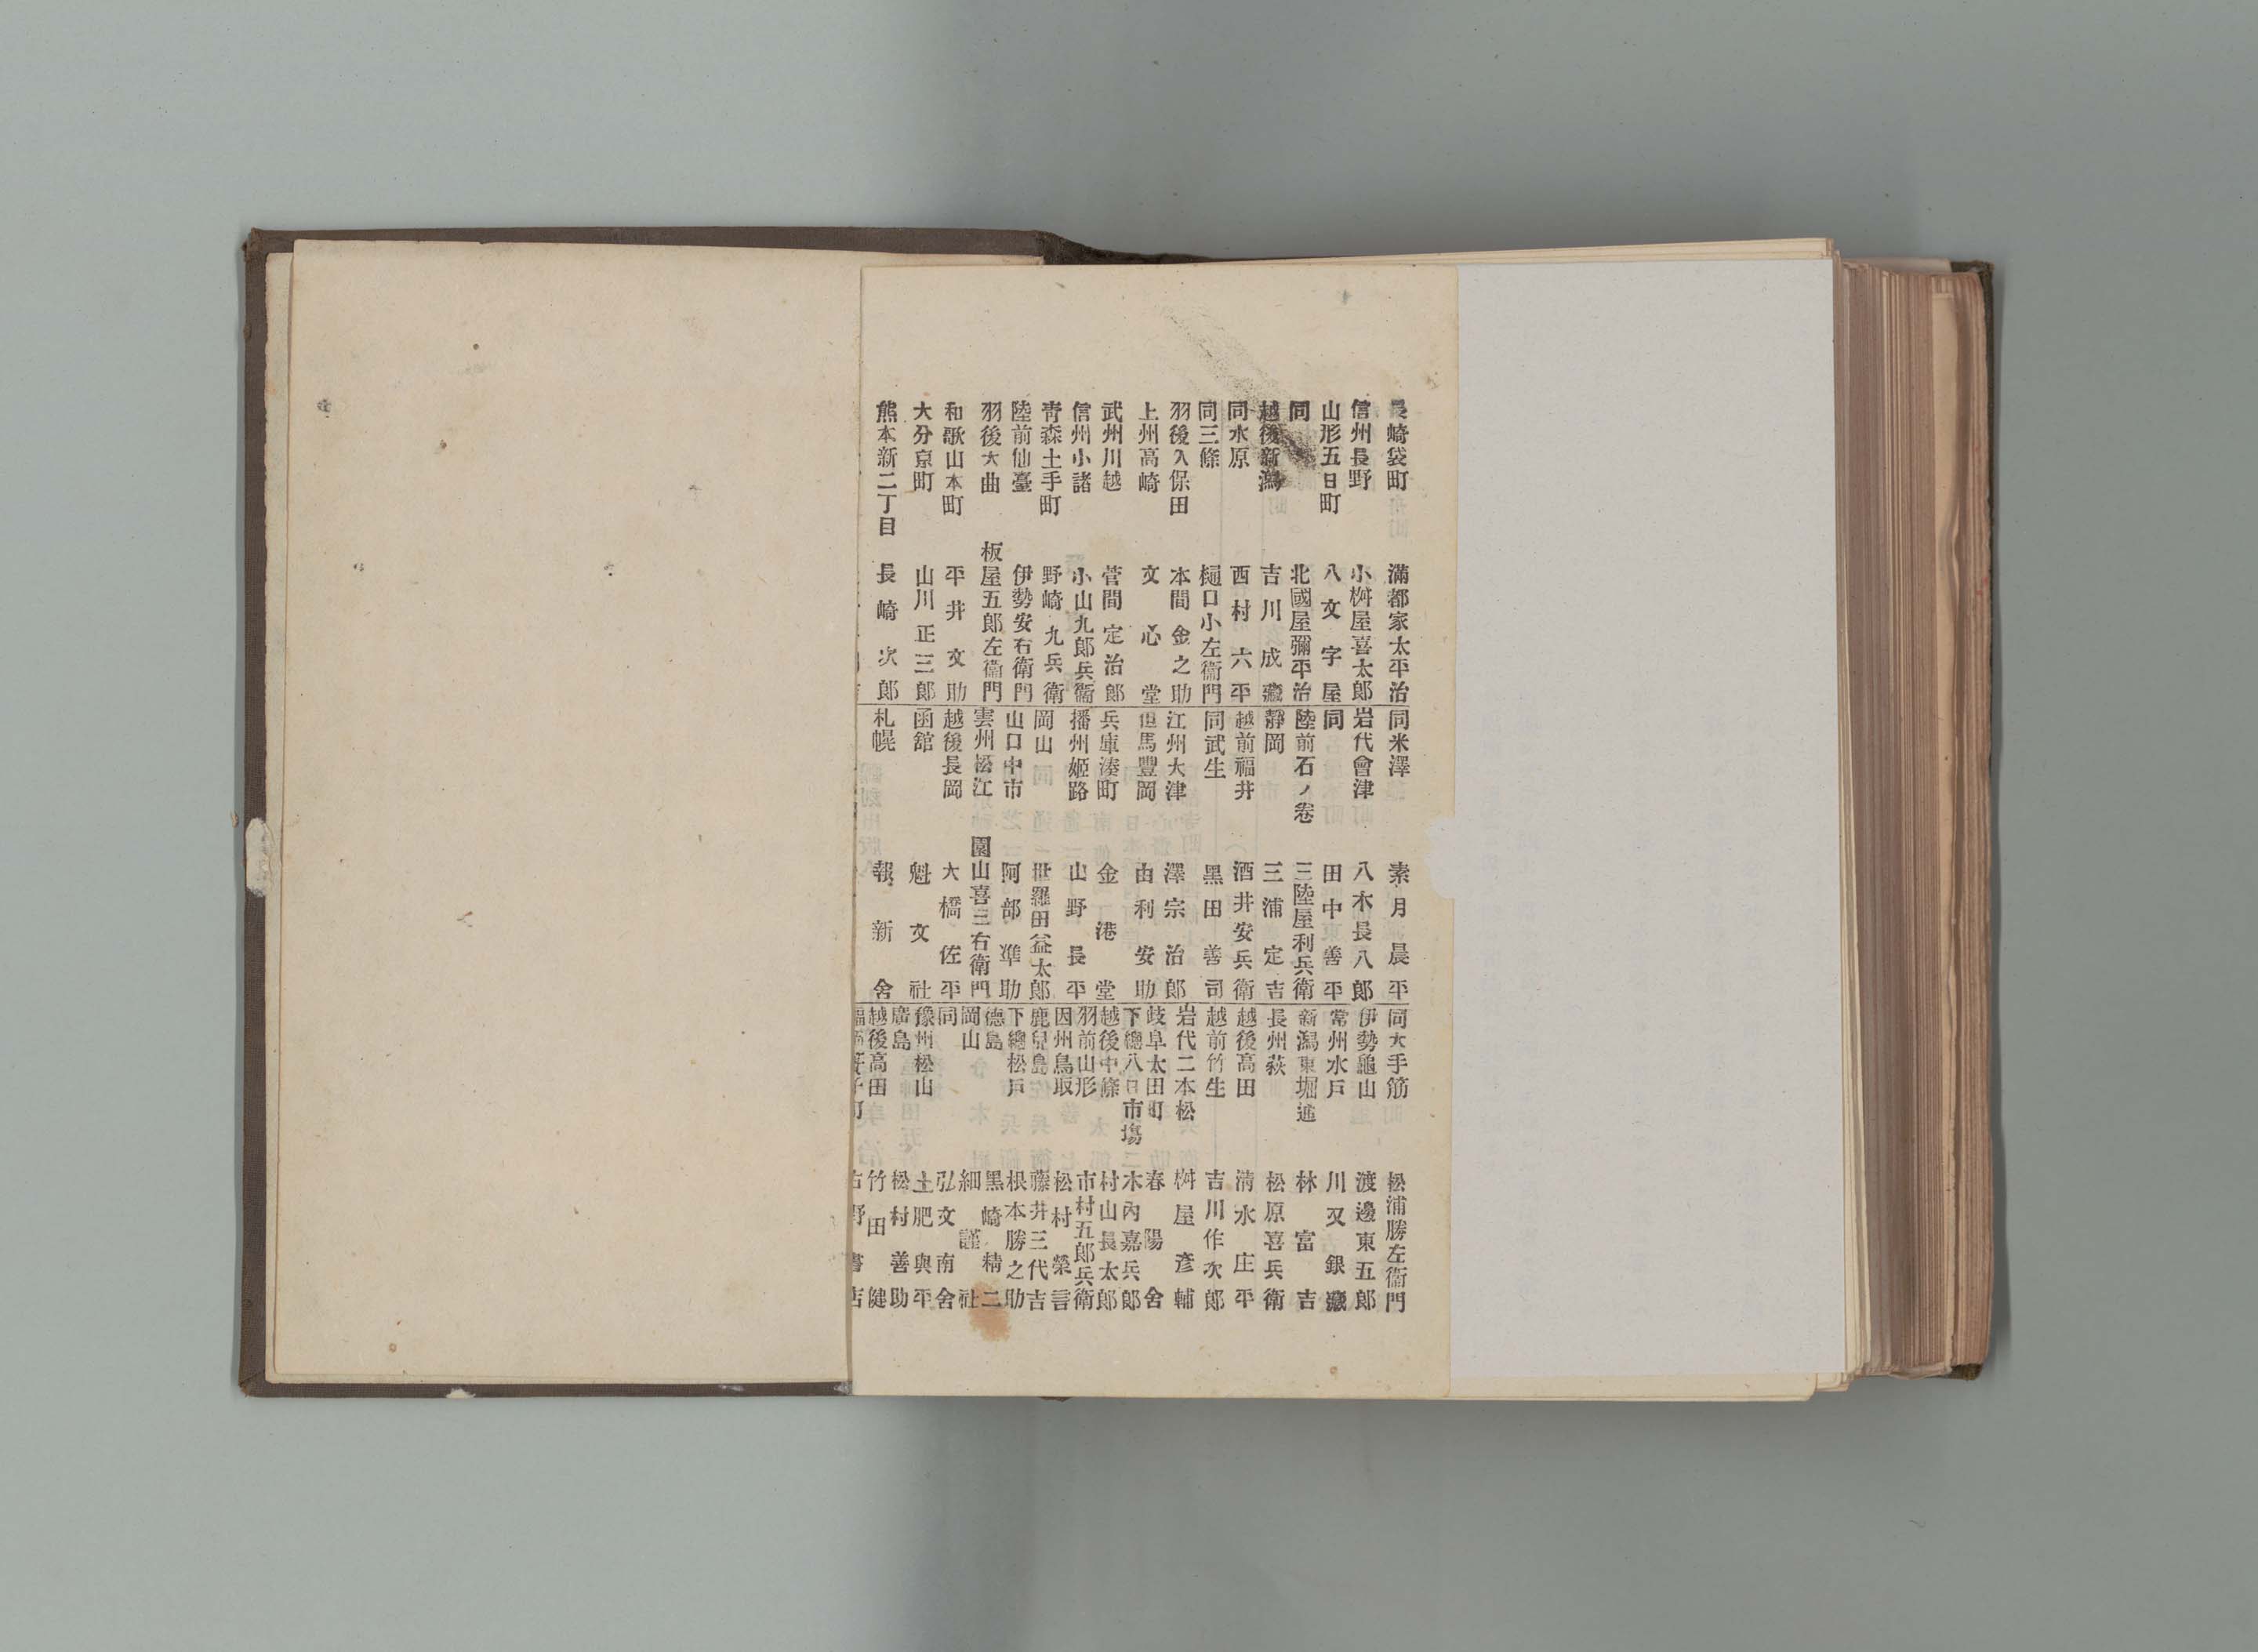 長崎袋町 滿都家太平治
信州長野 小桝屋喜太郎
山形五日町 八文字屋
同 北國屋彌平治
越後新潟 吉川成藏
同水原 西村六平
同三條 樋口小左衞門
羽後久保田 本間金之助
上州高崎 文心堂
武州川越 菅間定治郎
信州小諸 小山九郎兵衞
青森土手町 野崎九兵衛
陸前仙臺 伊勢安右衛門
羽後大曲 板屋五郎左衞門
和歌山本町 平井文助
大分京町 山川正三郎
熊本新二丁目 長崎次郎
同米澤 素月晨平
岩代會津 八木長八郎
同 田中善平
陸前石ノ卷 三陸屋利兵衛
靜岡 三浦定吉
越前福井 酒井安兵衛
同武生 黑田善司
江州大津 澤宗治郎
但馬豐岡 由利安助
兵庫湊町 金港堂
播州姬路 山野長平
岡山 世羅田益太郎
山口中市 阿部準助
雲州松江 園山喜三右衛門
越後長岡 大橋佐平
函舘 魁文社
札幌 報新舍
同大手筋 松浦勝左衞門
伊勢龜山 渡邊東五郎
常州水戶 川又銀藏
新潟東堀通 林富吉
長州萩 松原喜兵衛
越後高田 淸水庄平
越前竹生 吉川作次郎
岩代二本松 桝屋彥輔
岐阜太田町 春陽舍
下總八日市塲 木內嘉兵郎
越後中條 村山長太郎
羽前山形 市村五郎兵衛
因州鳥取 松村榮言
鹿兒島 藤井三代吉
下總松戶 根本勝之助
德島 黑崎精二
岡山 細謹社
同 弘文南舍
豫州松山 土肥與平
廣島 松村善助
越後高田 竹田健